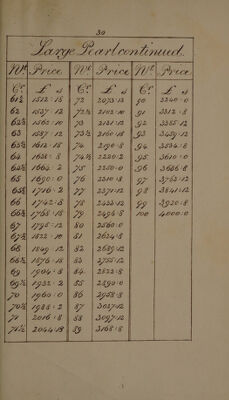 30
Large Pearl continued
Wt. Price Wt. Price Wt. Price
Ct. £ s Ct. £ s Ct. £ s
61½ 1512 : 18 72 2073 : 12 90 3240 : 0
62 1537 : 12 72½ 2102 : 10 91 3312 : 8
62½ 1562 : 10 73 2131 : 12 92 3385 : 12
63 1587 : 12 73½ 2160 : 18 93 3459 : 12
63½ 1612 : 18 74 2190 : 8 94 3534 : 8
64 1638 : 8 74½ 2220 : 2 95 3610 : 0
64½ 1664 : 2 75 2250 : 0 96 3686 : 8
65 1690 : 0 76 2310 : 8 97 3763 : 12
65½ 1716 : 2 77 2371 : 12 98 3841 : 12
66 1742 : 8 78 2433 : 12 99 3920 : 8
66½ 1768 : 18 79 2496 : 8 100 4000 : 0
67 1795 : 12 80 2560 : 0
67½ 1822 : 10 81 2624 : 8
68 1849 : 12 82 2689 : 12
68½ 1876 : 18 83 2755 : 12
69 1904 : 8 84 2822 : 8
69½ 1932 : 2 85 2890 : 0
70 1960 : 0 86 2958 : 8
70½ 1988 : 2 87 3027 : 12
71 2016 : 8 88 3097 : 12
71½ 2044 : 18 89 3168 : 8